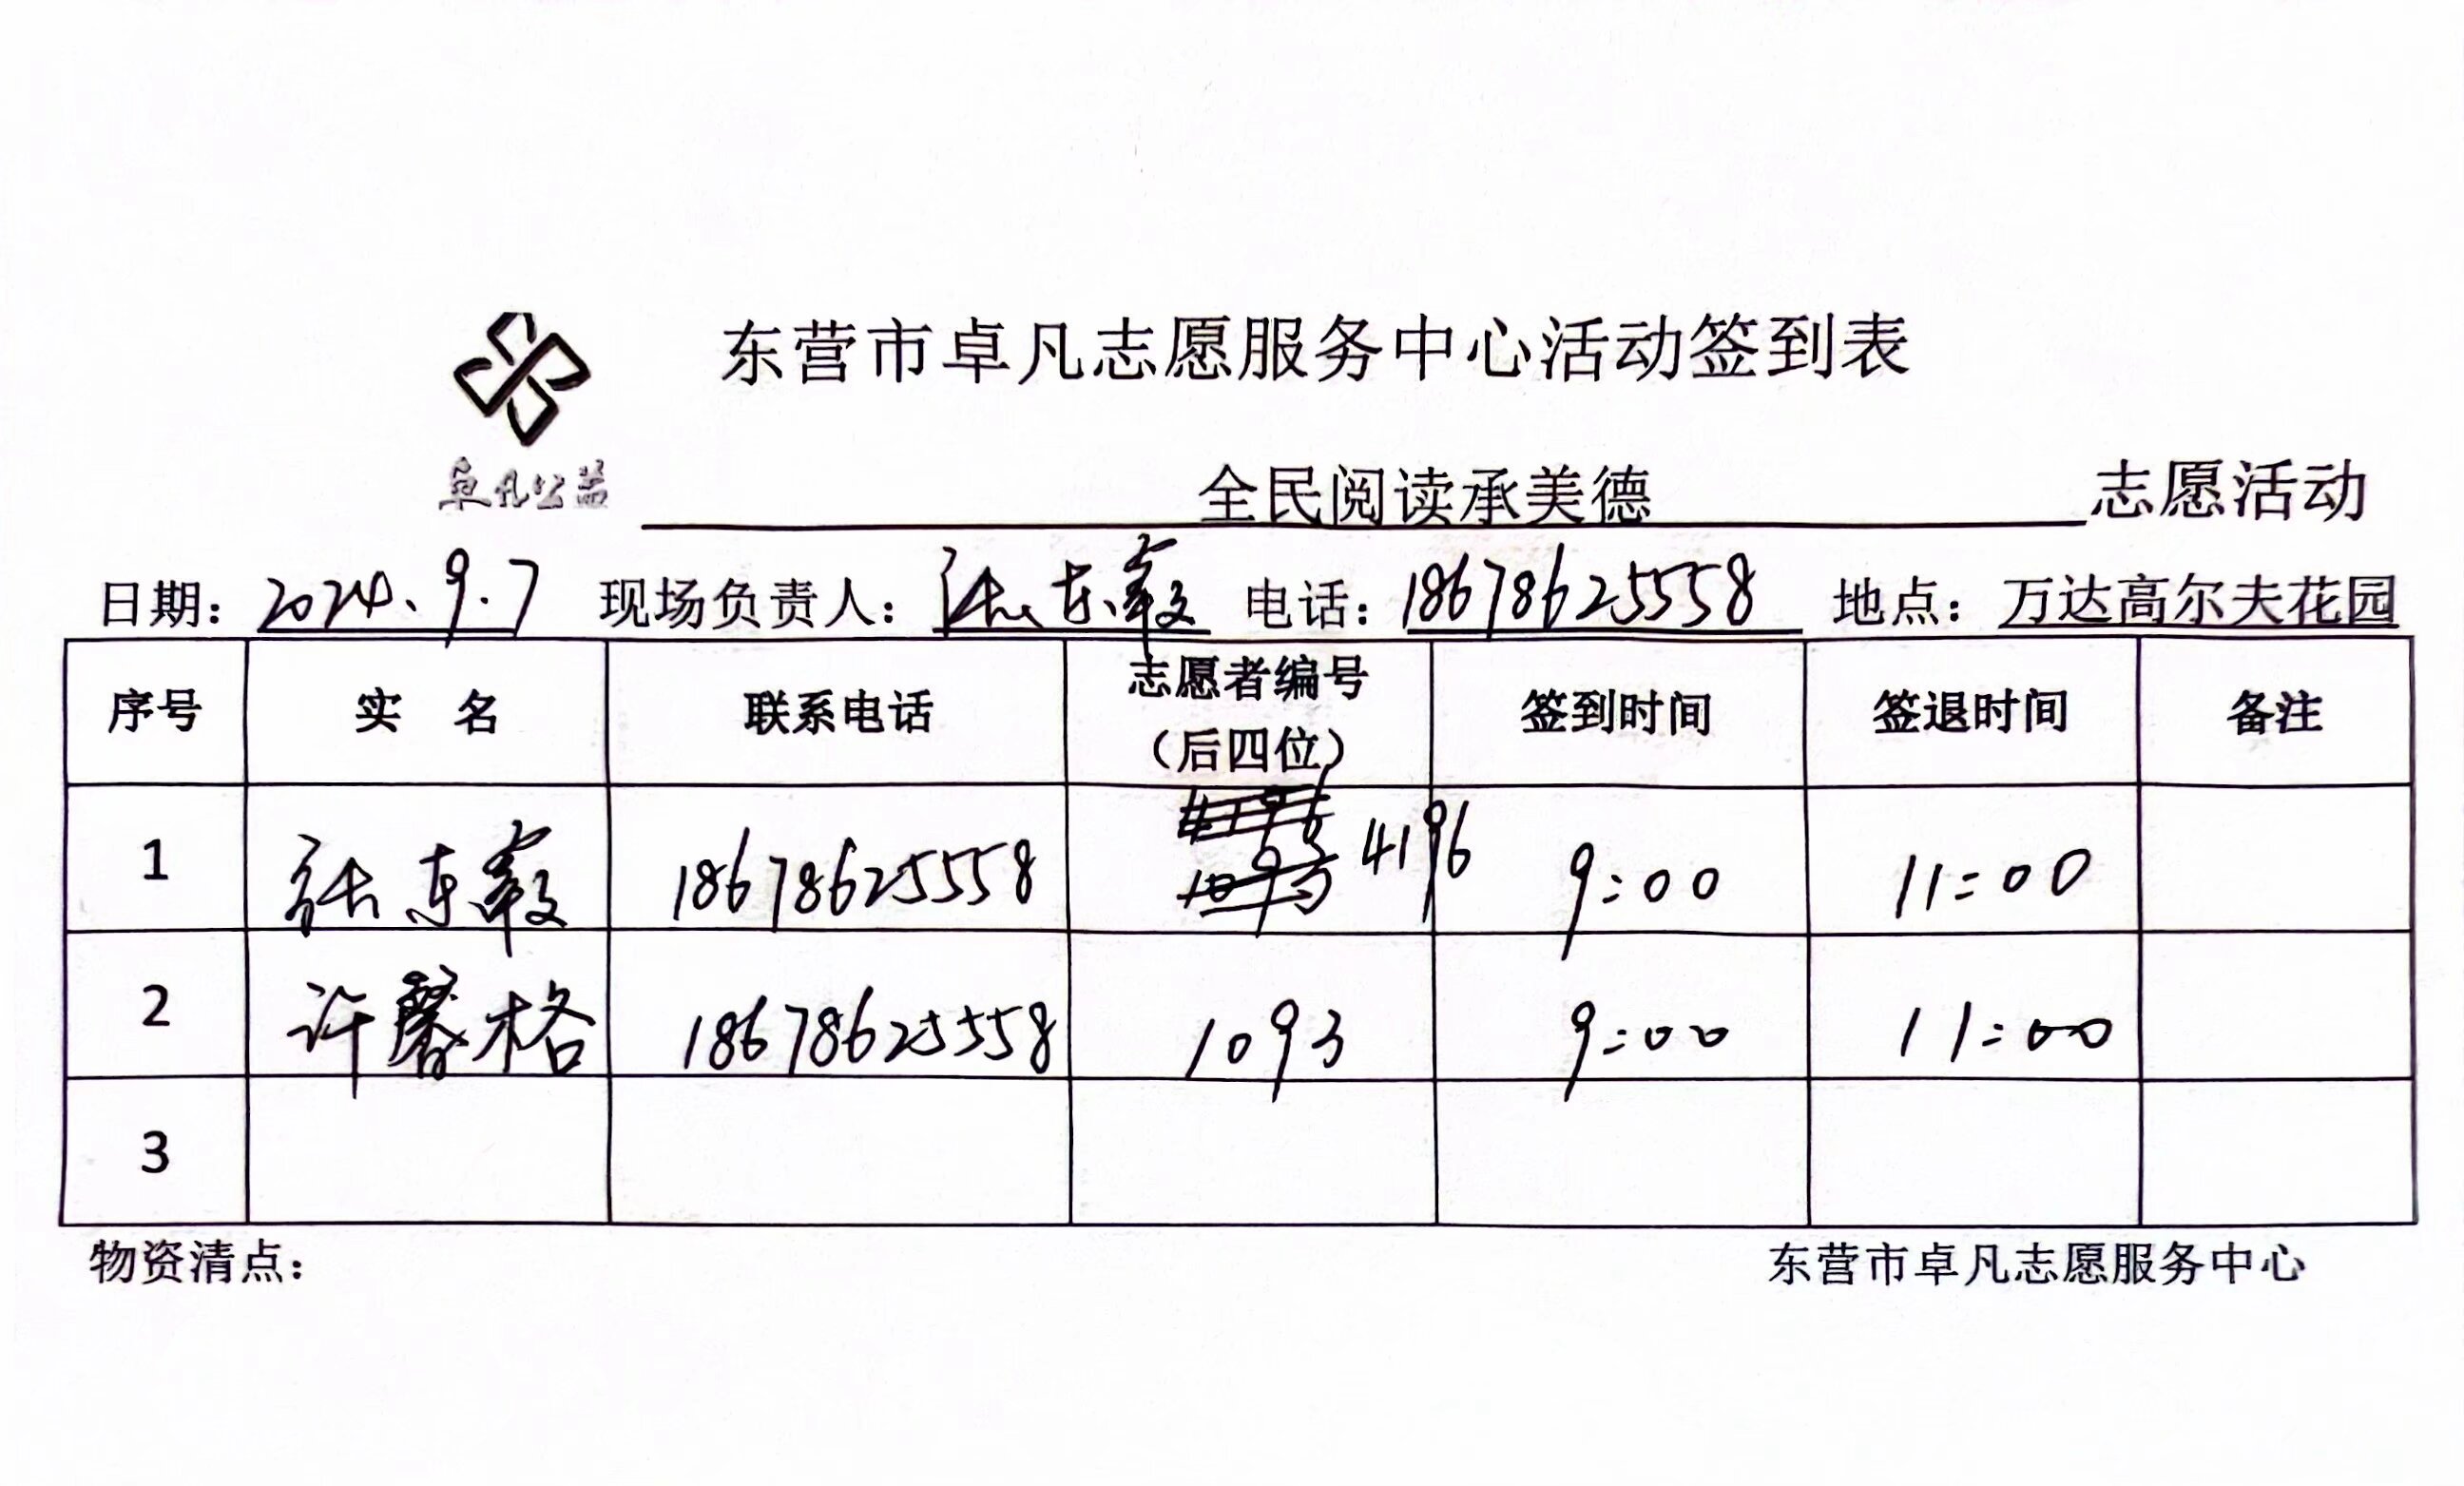 东营市卓凡志愿服务中心活动签到表
卓凡公益
全民阅读承美德 志愿活动
日期: 2024.9.7 现场负责人: 张东 电话: 18678625558 地点: 万达高尔夫花园
序号 实 名 联系电话 志愿者编号(后四位) 签到时间 签退时间 备注
1 张东 18678625558 4196 9:00 11:00
2 许馨格 18678625558 1093 9:00 11:00
3
物资清点: 东营市卓凡志愿服务中心